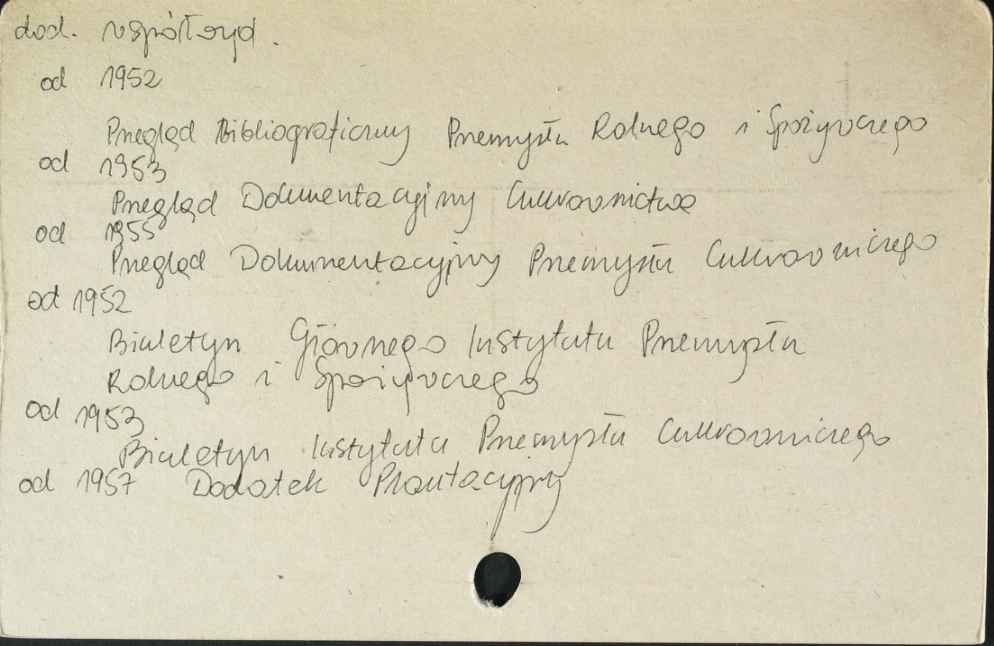 dod. współwyd.
od 1952
Przegląd Bibliograficzny Przemysłu Rolnego i Spożywczego
od 1953
Przegląd Dokumentacyjny Cukrownictwa
od 1955
Przegląd Dokumentacyjny Przemysłu Cukrowniczego
od 1952
Biuletyn Głównego Instytutu Przemysłu
Rolnego i Spożywczego
od 1953
Biuletyn Instytutu Przemysłu Cukrowniczego
od 1957 Dodatek Plantacyjny